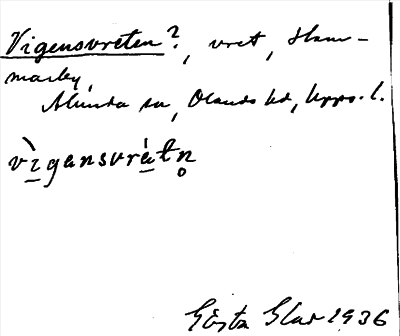 Vigensvreten?, vret, Ham-
marby,
Almunda sn, Olands hd, Upps. l.
vìgensvrètn̥
Gösta Glas 1936